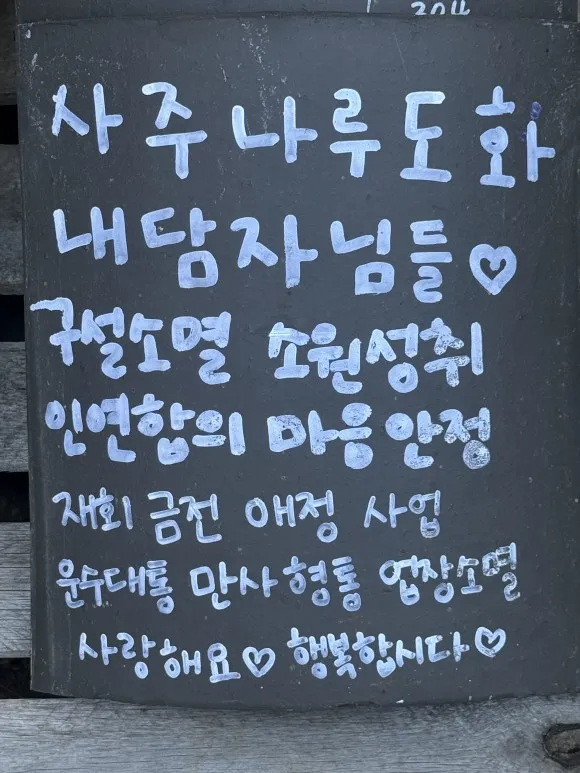 2011
사주나루도화
내담자님들♡
구설소멸 소원성취
인연합의 마음안정
재회 금전 애정 사업
운수대통 만사형통 업장소멸
사랑해요♡ 행복합시다♡